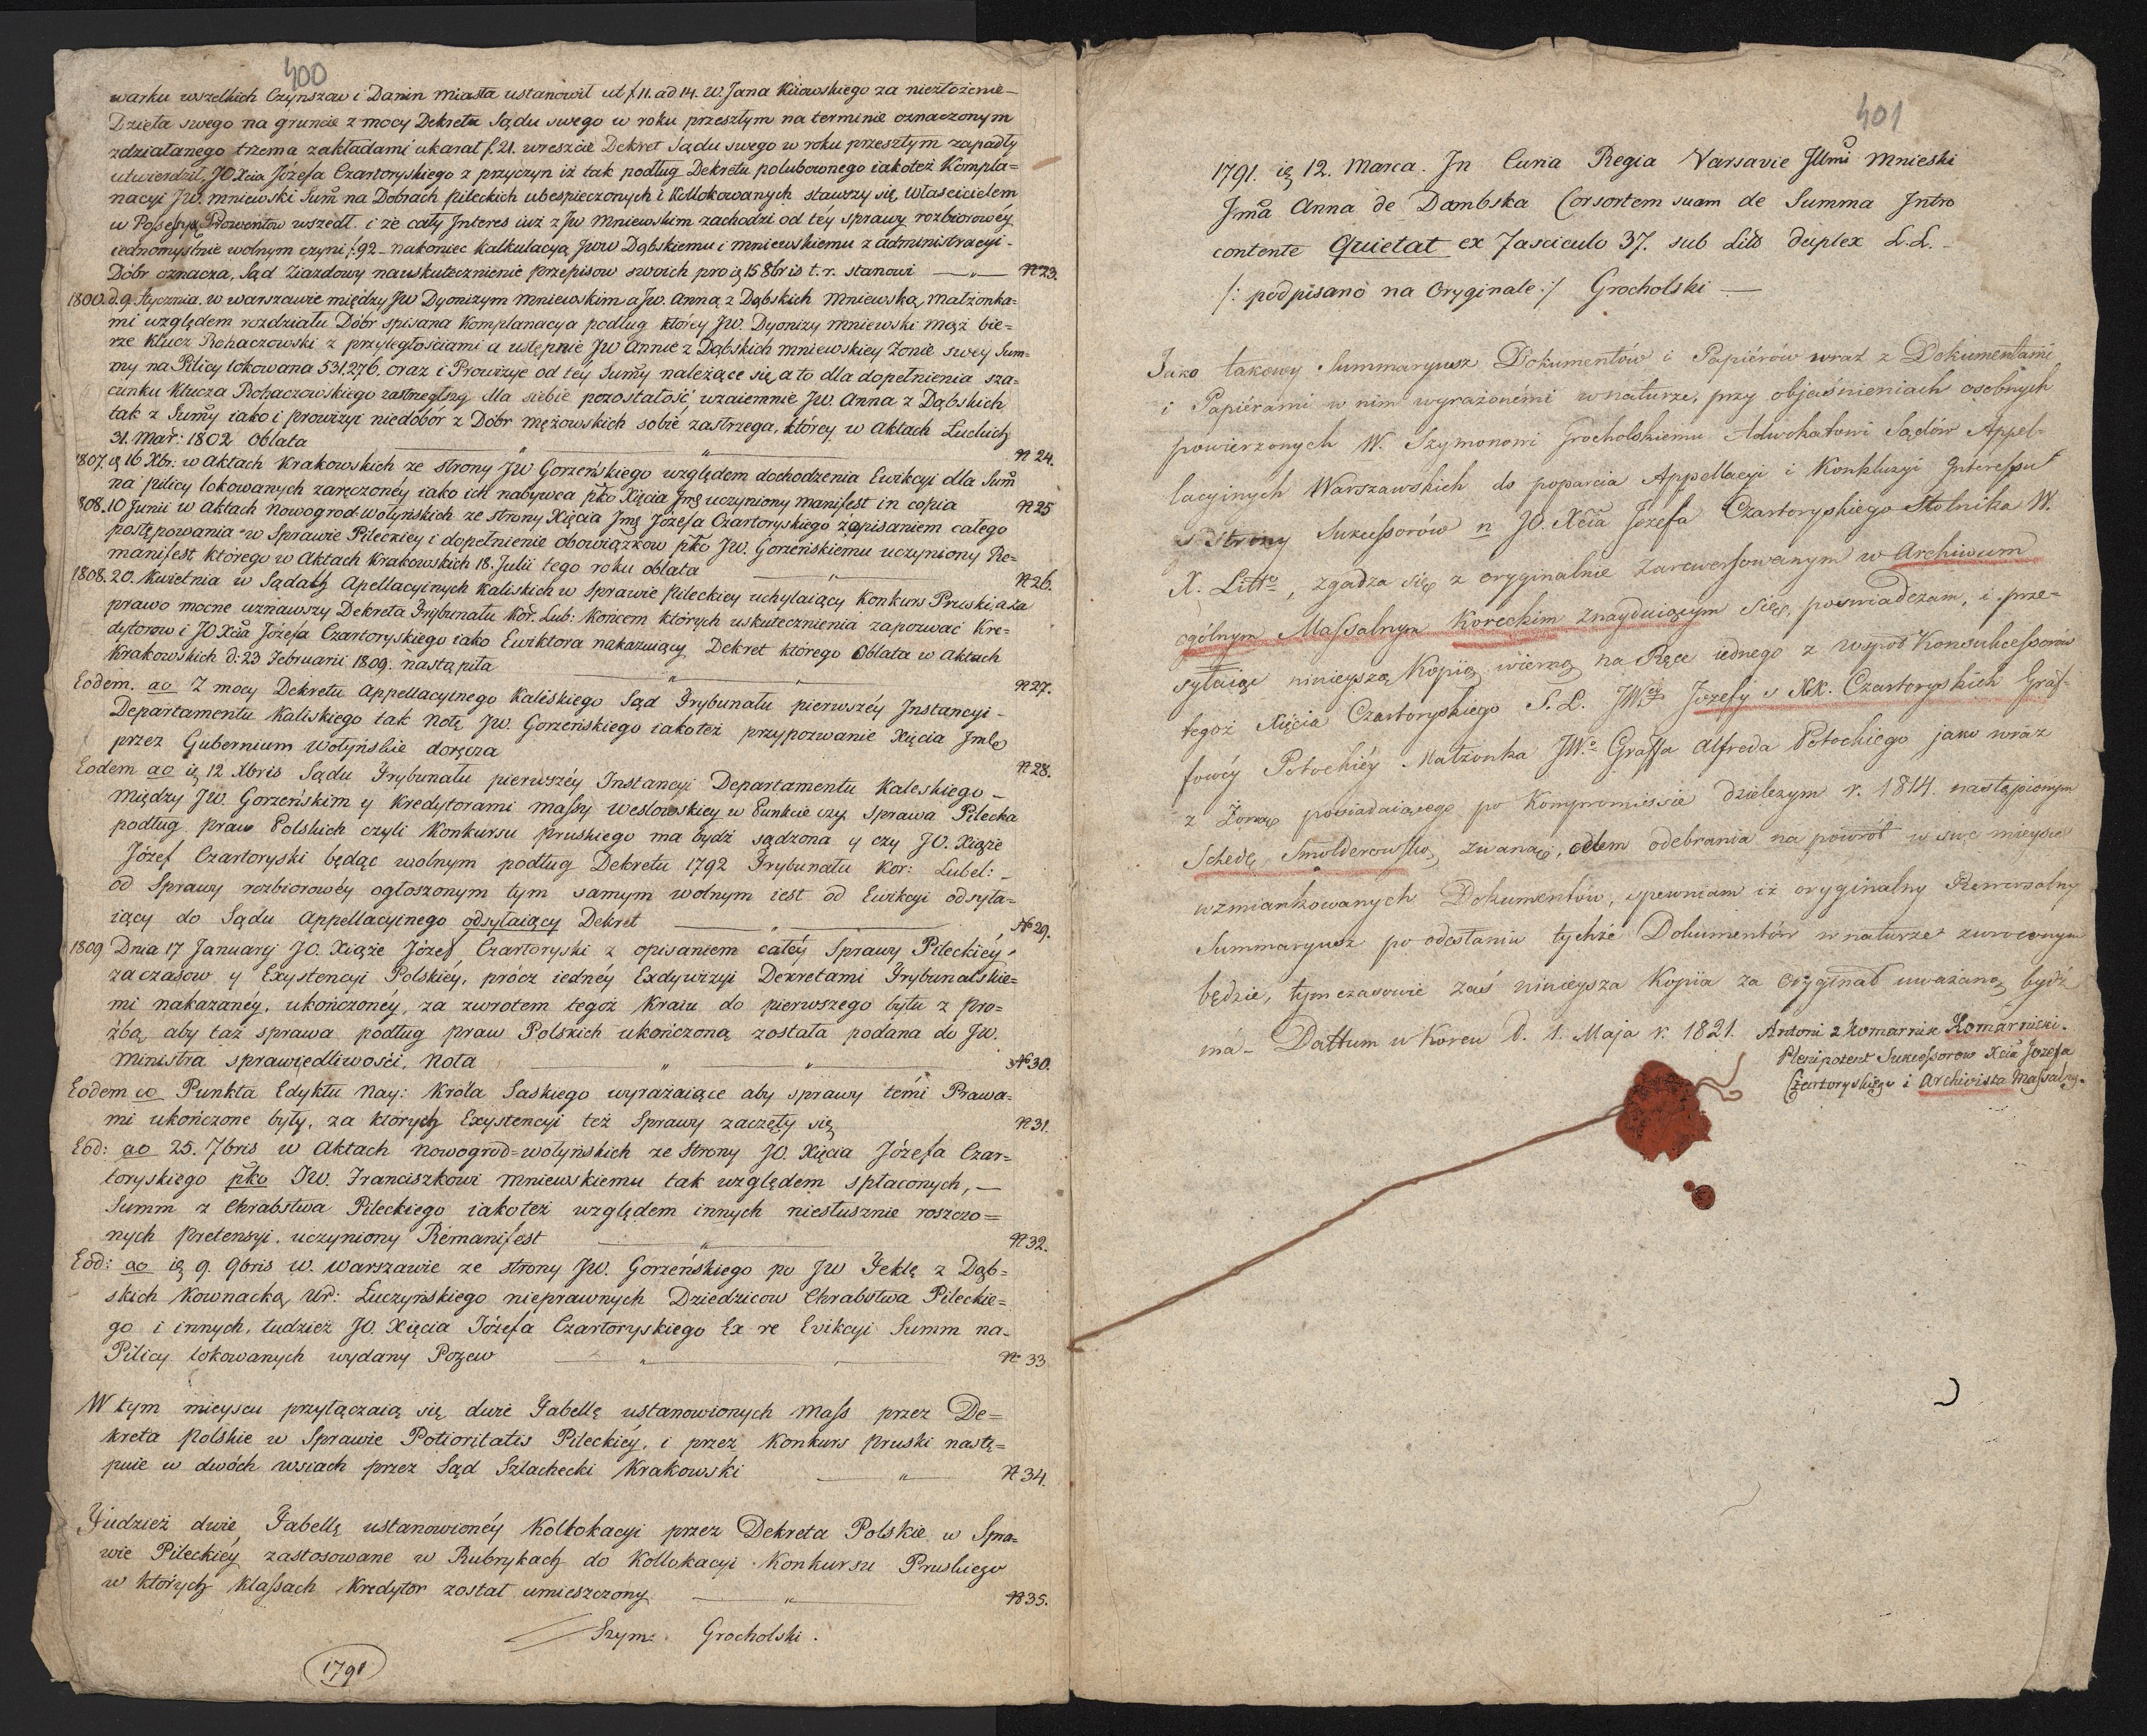 400
warku wszelkich Czynszow i Danin miasta ustanowił ut f 11. ad 14. W. Jana Kiiowskiego za niezłożenie
Dzieła swego na gruncie z mocy Dekretu Sądu swego w roku przeszłym na terminie oznaczonym
zdziałanego trzema zakładami ukarał f. 21. wreszcie Dekret Sądu swego w roku przeszłym zapadły
utwierdził, JO Xcia Józefa Czartoryskiego z przyczyn iż tak podług Dekretu polubownego iakoteż Kompla=
nacyi JW. Mniewski Sum̃ na Dobrach Pileckich ubespieczonych i Kollokowanych stawszy się Właścicielem
w Possessyą Prowentow wszedł. i że cały Interes iuż z JW Mniewskim zachodzi od tey sprawy rozbiorowéy
iednomyślnie wolnym czyni f. 92 – nakoniec Kalkulacyą JWW Dąbskiemu i Mniewskiemu z administracyi –
Dóbr oznacza, Sąd Ziazdowy na uskutecznienie przepisow swoich pro ią 15 8bris t. r. stanowi — „ — N 23.
1800. d. 9. Stycznia. w Warszawie między JW Dyonizym Mniewskim a JW. Anną z Dąbskich Mniewską, Małżonka=
mi względem rozdziału Dóbr spisana Komplanacya podług którey JW. Dyonizy Mniewski Mąż bie=
rze Klucz Rohaczowski z przyległościami a ustępuie JW Annie z Dąbskich Mniewskiey Żonie swey Sum=
my na Pilicy lokowana 531,276. oraz i Prowizye od tey Sum̃y należące się, a to dla dopełnienia sza=
cunku Klucza Rohaczowskiego zastrzegłszy dla siebie pozostałość, wzaiemnie JW. Anna z Dąbskich
tak z Sum̃y iako i prowizyi niedóbór z Dóbr mężowskich sobie zastrzega, którey w Aktach Luckich
31. Mar: 1802 Oblata — „ — N 24.
1807. ią 16 Xbr: w Aktach Krakowskich ze strony JW Gorzeńskiego względem dochodzenia Ewikcyi dla Sum̃
na Pilicy lokowanych zaręczonéy iako ich nabywca p̃ko Xięcia Jmę uczyniony manifest in copia N 25
808. 10 Junii w Aktach Nowogrod wołyńskich ze strony Xięcia Jmę Józefa Czartoryskiego z opisaniem całego
postępowania w Sprawie Pileckiey i dopełnienie obowiązkow p̃ko JW. Gorzeńskiemu uczyniony Re=
manifest którego w Aktach Krakowskich 18. Julii tego roku oblata — „ — N 26.
1808. 20. Kwietnia w Sądach Apellacyinych Kaliskich w Sprawie Pileckiey uchylaiący Konkurs Pruski, a za
prawo mocne uznawszy Dekreta Trybunału Kor. Lub: Końcem których uskutecznienia zapozwać Kre=
dytorow i JO Xcia Józefa Czartoryskiego iako Ewiktora nakazuiący Dekret którego Oblata w Aktach
Krakowskich d: 23 Februarii 1809. nastąpiła — „ — N 27.
Eodem. ao Z mocy Dekretu Appellacyinego Kaliskiego Sąd Trybunału pierwszéy Instancyi –
Departamentu Kaliskiego tak Notę JW. Gorzeńskiego iakoteż przypozwanie Xięcia Jmę
przez Gubernium Wołyńskie doręcza N 28.
Eodem ao ią 12 Xbris Sądu Trybunału pierwszéy Instancyi Departamentu Kaleskiego –
Między JW. Gorzeńskim y Kredytorami massy Weslowskiey w Punkcie czy. Sprawa Pilecka
podług praw Polskich czyli Konkursu pruskiego ma bydź sądzona y czy JO. Xiąże
Józef Czartoryski będąc wolnym podług Dekretu 1792 Trybunału Kor: Lubel: –
od Sprawy rozbiorowéy ogłoszonym tym samym wolnym iest od Ewikcyi odsyła=
iący do Sądu Appellacyinego odsyłaiący Dekret — „ — N 29.
1809 Dnia 17 Januarij JO. Xiąże Józef Czartoryski z opisaniem całéy Sprawy Pileckiéy
za czasow y Exystencyi Polskiéy, prócz iednéy Exdywizyi Dekretami Trybunalskie=
mi nakazanéy, ukończonéy, za zwrotem tegoż Kraiu do pierwszego bytu z pro=
źbą, aby taż sprawa podług praw Polskich ukończoną została podana do JW.
Ministra sprawiedliwości, Nota „ „ N 30.
Eodem ao Punkta Edyktu Nay: Króla Saskiego wyrażaiące aby sprawy temi Prawa=
mi ukończone były, za których Exystencyi też Sprawy zaczęły się N 31.
Eod: ao 25. 7bris w Aktach Nowogrod=wołyńskich ze Strony JO. Xięcia Józefa Czar=
toryskiego p̃ko JW. Franciszkowi Mniewskiemu tak względem spłaconych, —
Summ z Chrabstwa Pileckiego iakoteż względem innych niesłusznie roszczo=
nych Pretensyi. uczyniony Remanifest — „ — N 32.
Eod: ao ią 9. 9bris w. Warszawie ze strony JW. Gorzeńskiego po JW Teklę z Dąb=
skich Kownacką, Ur: Łuczyńskiego nieprawnych Dziedzicow Chrabstwa Pileckie=
go i innych, tudzież JO. Xięcia Józefa Czartoryskiego Ex re Evikcyi Summ na=
Pilicy lokowanych wydany Pozew — „ — N 33
W tym mieyscu przyłączaią się dwie Tabelle ustanowionych Mass przez De=
kreta Polskie w Sprawie Potioritatis Pileckiéy, i przez Konkurs Pruski nastę=
puie w dwóch wsiach przez Sąd Szlachecki Krakowski — „ — N 34.
Tudzież dwie Tabellę ustanowionéy Kollokacyi przez Dekreta Polskie w Spra=
wie Pileckiéy zastosowane w Rubrykach do Kollokacyi Konkursu Pruskiego
w których Klassach Kredytor został umieszczony — „ — N 35.
Szym: Grocholski.
1791
401
1791. ią 12. Marca. In Curia Regia Varsavie Jllm̃i Mnieski
Jm̃a Anna de Dambska Corsortem suam de Summa Intro
contente Quietat ex Fasciculo 37. sub Litt duplex L.L. –
/: podpisano na Oryginale :/ Grocholski —
Jako takowy Summaryusz Dokumentów i Papiérów wraz z Dokumentami
i Papiérami w nim wyrażonémi w naturze, przy objaśnieniach osobnych
powierzonych W. Szymonowi Grocholskiemu Adwokatowi Sądów Appel=
lacyinych Warszawskich do poparcia Appellacyi i Konkluzyi Interessu
z Strony Sukcessorów n JO. Xcia Józefa Czartoryskiego Stolnika W.
X. Litto, zgadza się z oryginalnie zarewersowanym w Archiwum
ogólnym Massalnym Koreckim znayduiącym się, poświadczam, i prze=
syłaiąc ninieyszą Kopią wierną na Ręce iednego z wspoł Konsukcessorow
tegoż Xięcia Czartoryskiego S. L. JWey Józefy z XX. Czartoryskich Graf=
fowéy Potockiéy Małżonka JWo Graffa Alfreda Potockiego jako wraz
z Żoną posiadaiącego po Kompromissie dzielczym r. 1814. nastąpionym
Schedę, Smolderowską zwaną, celem odebrania na powrót w swe mieysce
wzmiankowanych Dokumentów, upewniam iż oryginalny Rewersalny
Summaryusz po odesłaniu tychże Dokumentów w naturze zwroconym
będzie, tymczasowie zaś ninieysza Kopiia za Oryginał uważaną bydź
má – Dattum w Korcu d. 1. Maja r. 1821. Antoni z Komarnik Komarnicki.
Plenipotent Sukcessorow Xcia Józefa
Czartoryskiego i Archivista Massalny.